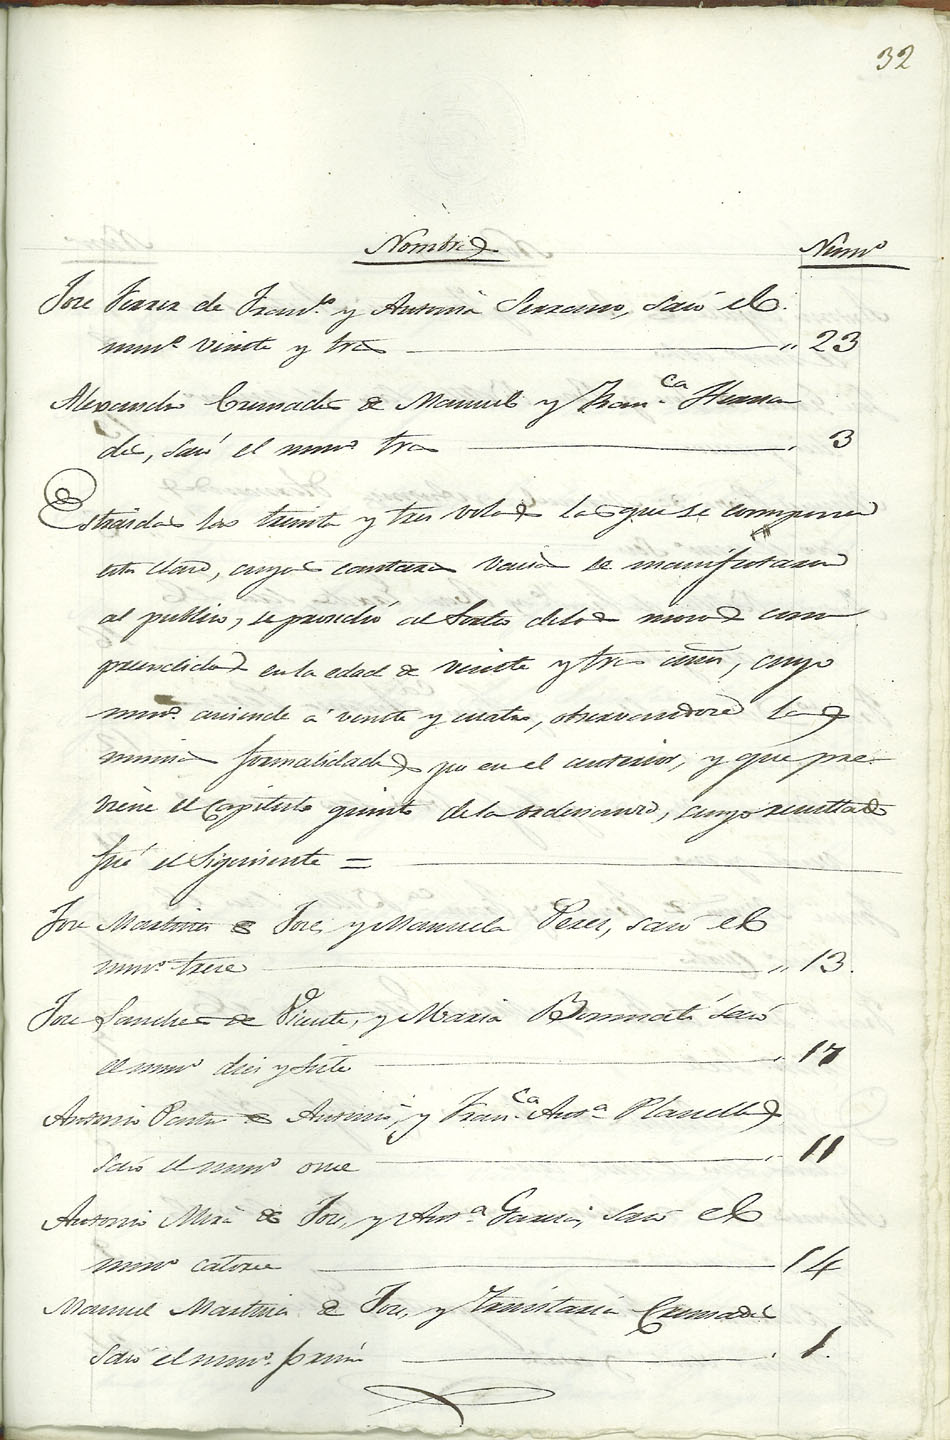 32
Nombres Numº
Jose Ferrer de Franco. y Antonia Serrano, sacó el
numº veinte y tres " 23
Alexandro Cremades de Manuel y Franca Hernan
des, sacó el numº tres 3
Estraidas las treinta y tres volas de las que se componia
esta clase, cuyos cantaros vacios se manifestaron
al publico, se procedió al Sorteo delos mosos com
prendidos en la edad de veinte y tres años, cuyo
numº. asciende á veinte y cuatro, observandose las
mismas formalidades que en el anterior, y que pre-
viene el Capitulo quinto dela ordenanza, cuyo resultado
fué el Siguiente =
Jose Martines de Jose, y Manuela Peres, sacó el
numº trece " 13.
Jose Sanches de Vicente, y Maria Bonmati sacó
el numº dies y siete 17
Antonio Pastor de Antonio, y Franca Anta Planelles
sacó el numº once 11
Antonio Mira de Jose, y Anta Garcia, sacó el
numº catorce 14
Manuel Martines de Jose, y Trinitaria Cremades
sacó el numº. primº 1.